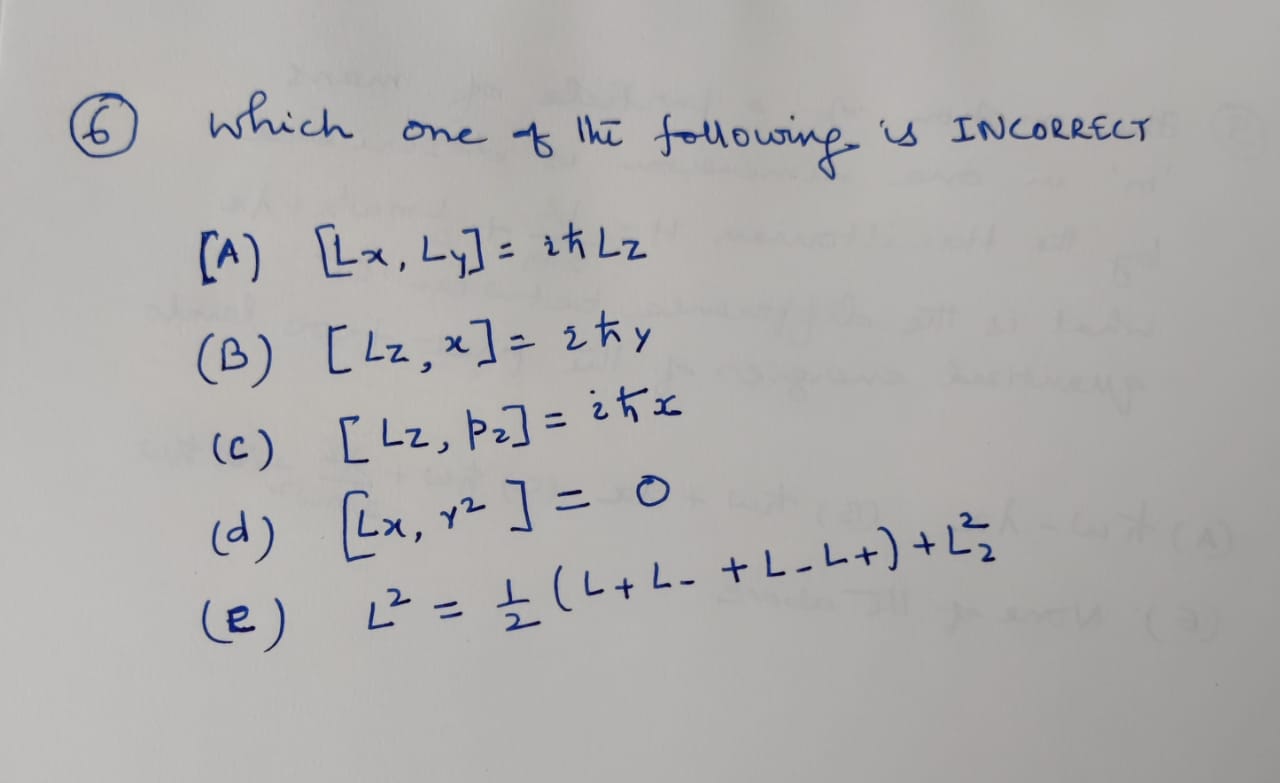 6 which one of the following is INCORRECT
[A) [Lx, Ly] = iħ Lz
(B) [Lz, x] = iħy
(c) [Lz, pz] = iħx
(d) [Lx, r² ] = 0
(e) L² = 1/2 (L+L- + L-L+) + Lz²